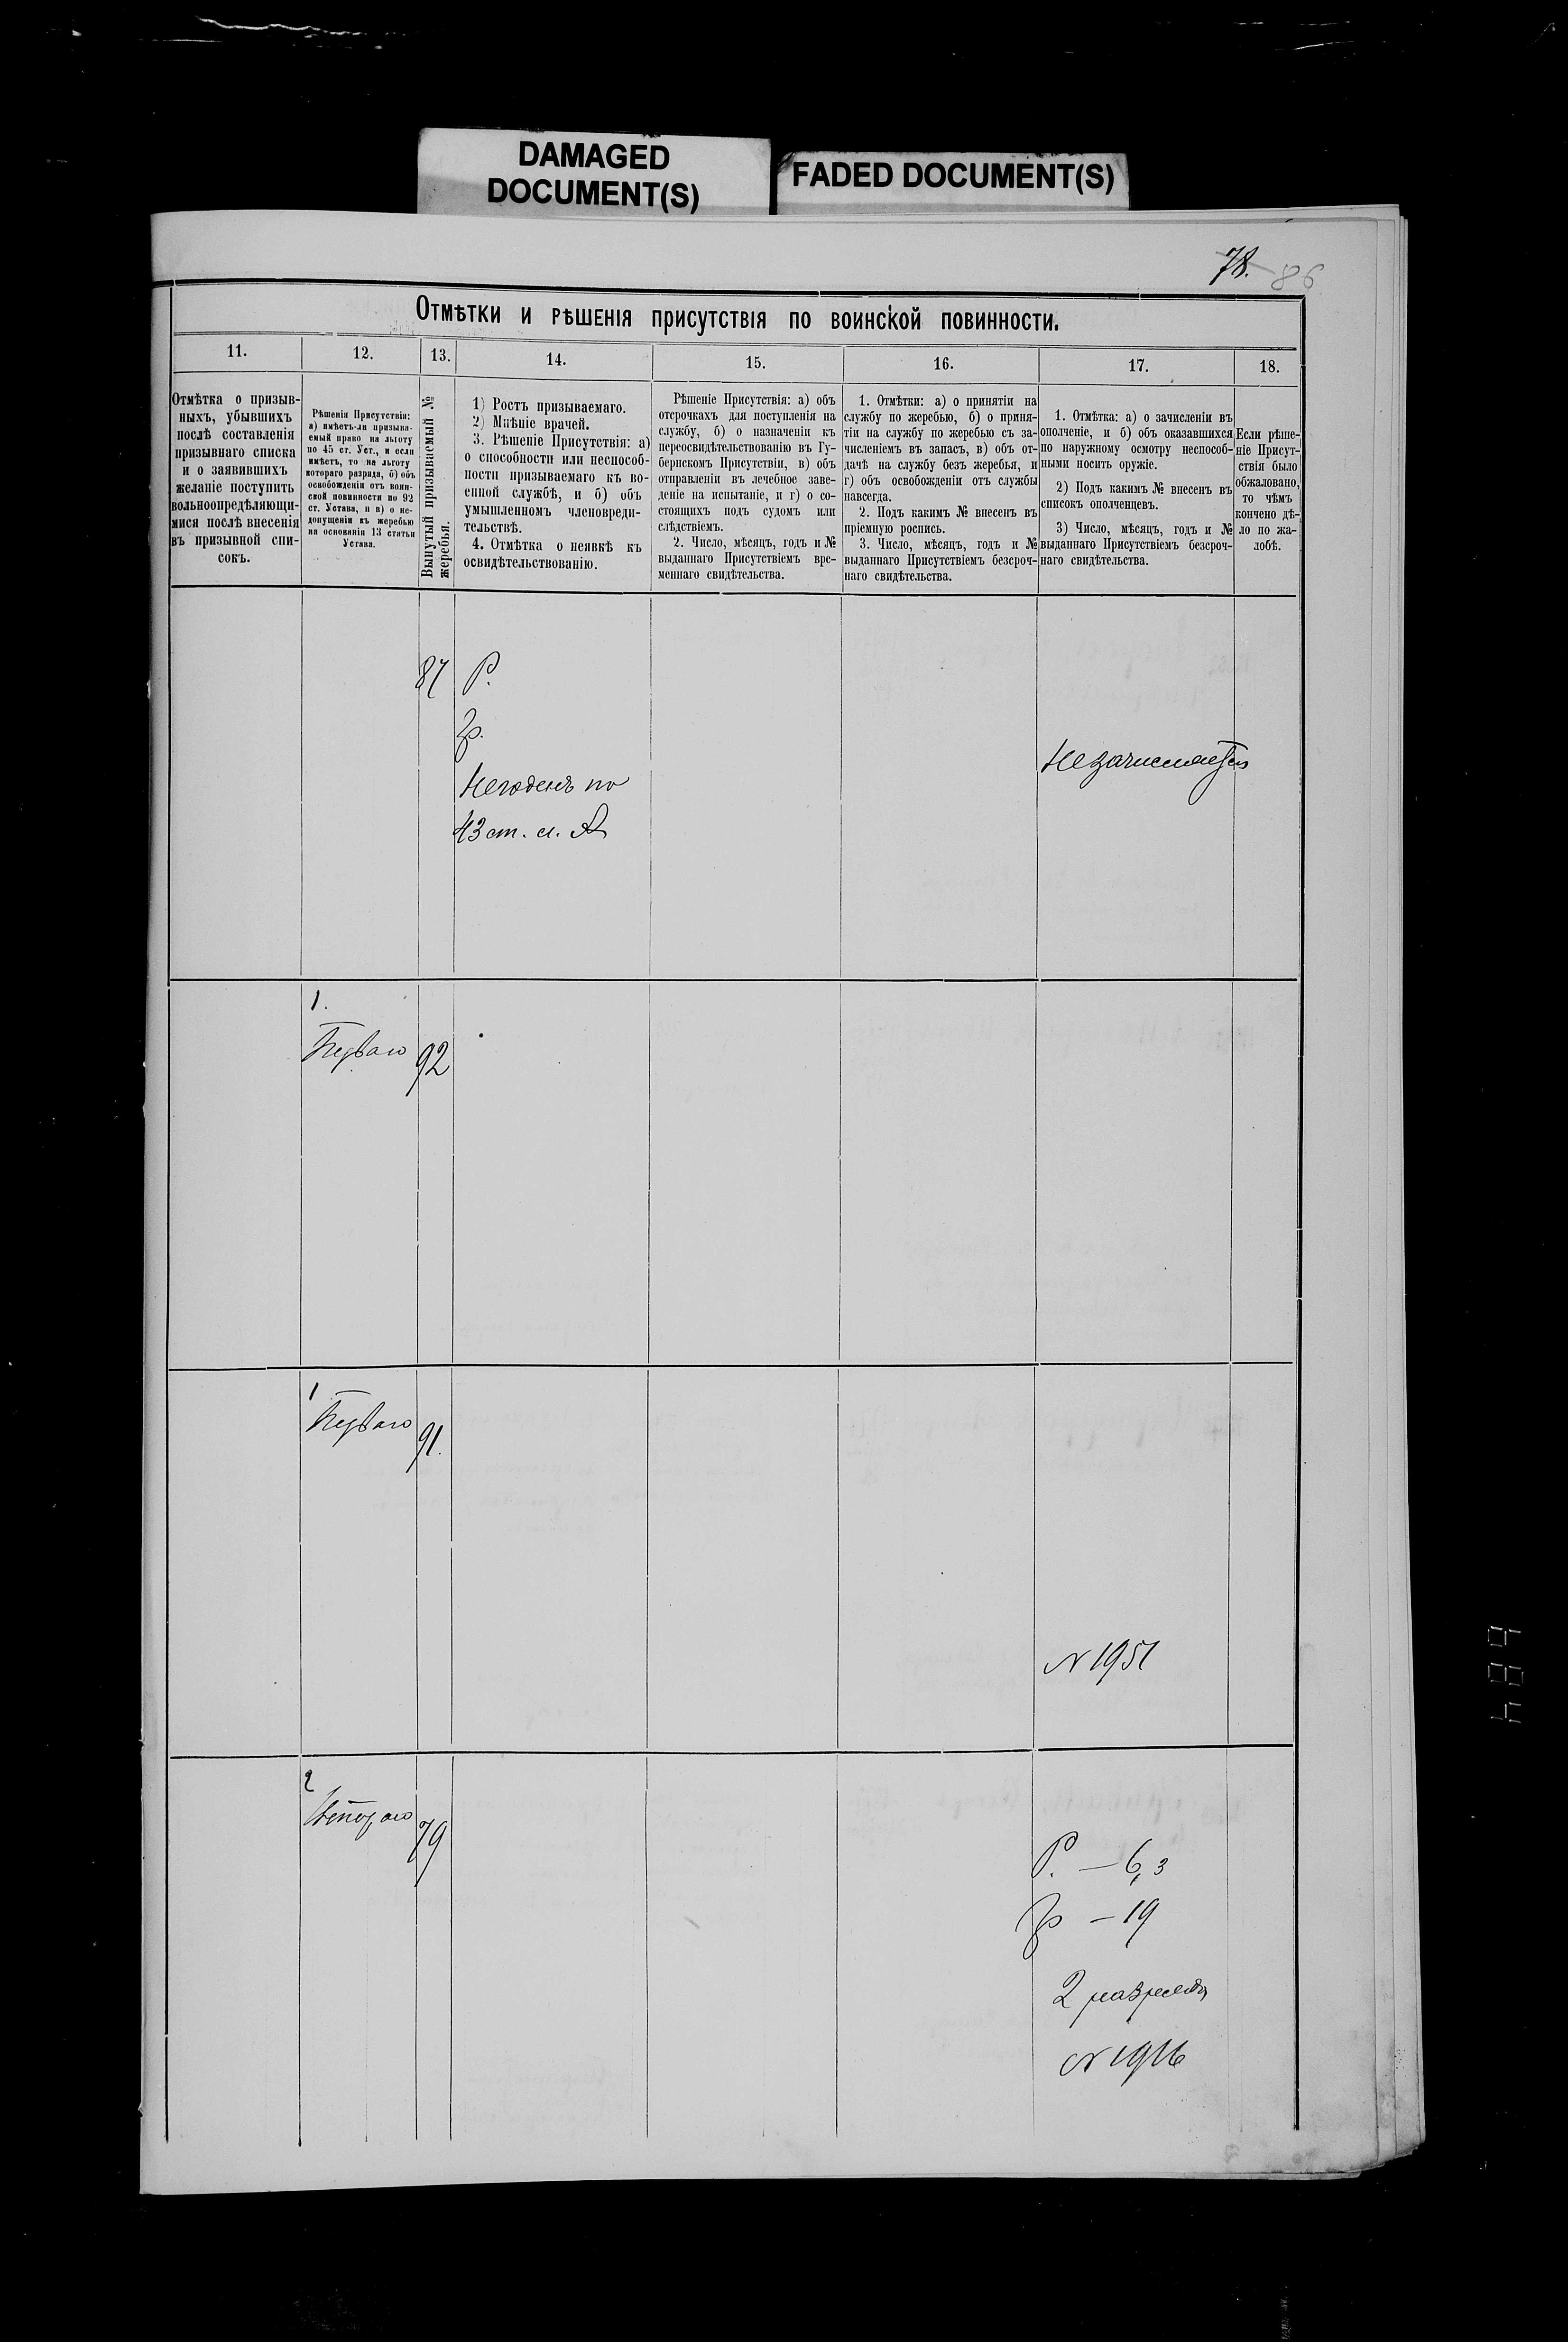 DAMAGED
DOCUMENT(S)
FADED DOCUMENT(S)
78. 86
Отмѣтки и рѣшенія присутствія по воинской повинности.
11.
12.
13.
14.
15.
16.
17.
18.
Отмѣтка о призыв-
ныхъ, убывшихъ
послѣ составленія
призывнаго списка
и о заявившихъ
желаніе поступить
вольноопредѣляющи-
мися послѣ внесенія
въ призывной спи-
сокъ.
Рѣшенія Присутствія:
а) имѣетъ-ли призыва-
емый право на льготу
по 45 ст. Уст., и если
имѣетъ, то на льготу
котораго разряда, б) объ
освобожденіи отъ воин-
ской повинности по 92
ст. Устава, и в) о не-
допущеніи къ жеребью
на основаніи 13 статьи
Устава.
Вынутый призываемый №
жеребья.
1) Ростъ призываемаго.
2) Мнѣніе врачей.
3. Рѣшеніе Присутствія: а)
о способности или неспособ-
ности призываемаго къ во-
енной службѣ, и б) объ
умышленномъ членовреди-
тельствѣ.
4. Отмѣтка о неявкѣ къ
освидѣтельствованію.
Рѣшеніе Присутствія: а) объ
отсрочкахъ для поступленія на
службу, б) о назначеніи къ
переосвидѣтельствованію въ Гу-
бернскомъ Присутствіи, в) объ
отправленіи въ лечебное заве-
деніе на испытаніе, и г) о со-
стоящихъ подъ судомъ или
слѣдствіемъ.
2. Число, мѣсяцъ, годъ и №
выданнаго Присутствіемъ вре-
меннаго свидѣтельства.
1. Отмѣтки: а) о принятіи на
службу по жеребью, б) о приня-
тіи на службу по жеребью съ за-
численіемъ въ запасъ, в) объ от-
дачѣ на службу безъ жеребья, и
г) объ освобожденіи отъ службы
навсегда.
2. Подъ какимъ № внесенъ въ
пріемную роспись.
3. Число, мѣсяцъ, годъ и №
выданнаго Присутствіемъ безсроч-
наго свидѣтельства.
1. Отмѣтка: а) о зачисленіи въ
ополченіе, и б) объ оказавшихся
по наружному осмотру неспособ-
ными носить оружіе.
2) Подъ какимъ № внесенъ въ
списокъ ополченцевъ.
3) Число, мѣсяцъ, годъ и №
выданнаго Присутствіемъ безсроч-
наго свидѣтельства.
Если рѣше-
ніе Присут-
ствія было
обжаловано,
то чѣмъ
кончено дѣ-
ло по жа-
лобѣ.
87
Р.
гр.
Негоденъ по
43 ст. л. А
Незачисляется
1.
Перваго
92
1
Перваго
91.
№ 1951
2
Втораго
79
Р. — 6,3
гр — 19
2 разряда
№ 1916
684